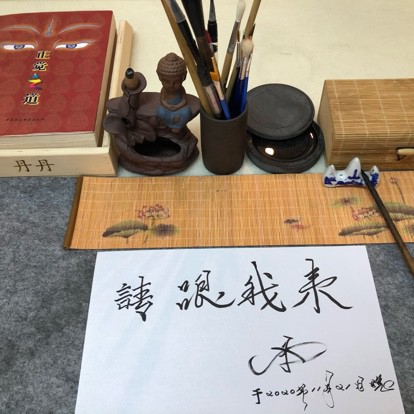 正觉之道
丹丹
請跟我来
于2020年11月21号晚